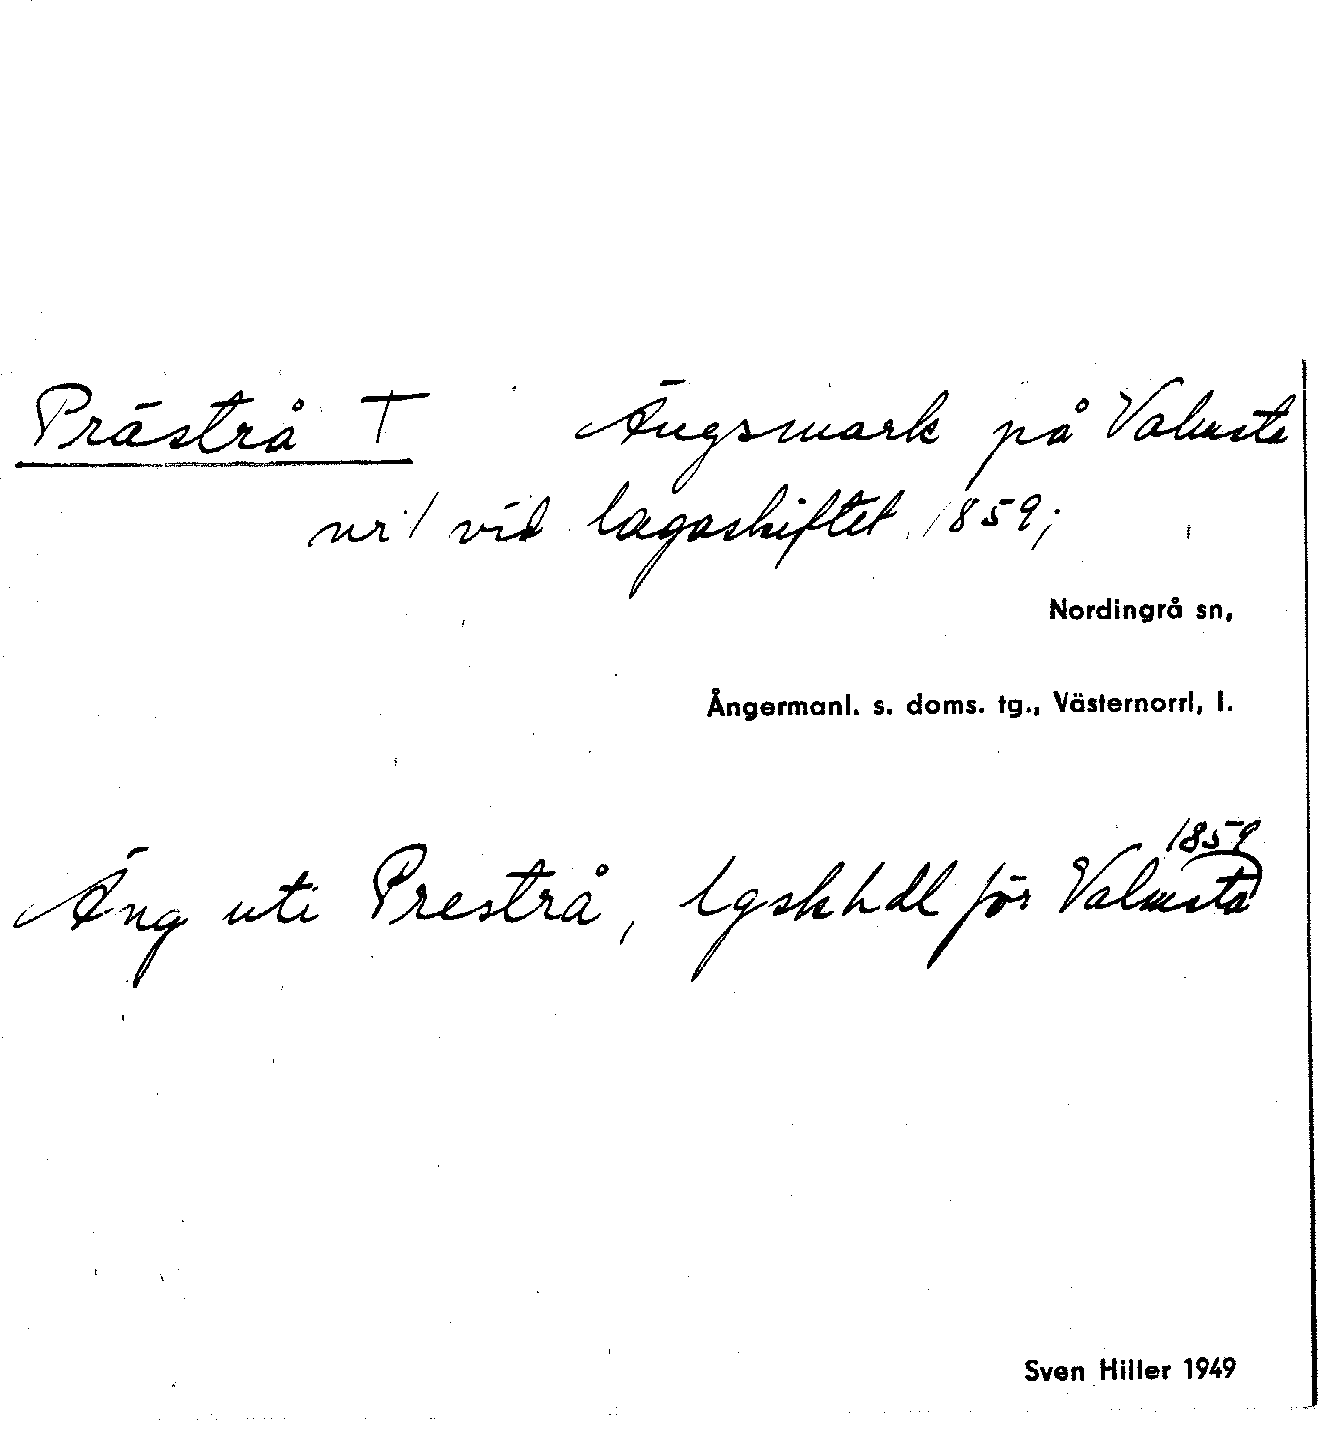 Präströ T Ängsmark på Valmsta
nr 1 vid lagaskiftet 1859;
Nordingrå sn,
Ångermanl. s. doms. tg., Västernorrl, l.
1859
Äng uti Prestrå, lgskhdl för Valmsta
Sven Hiller 1949